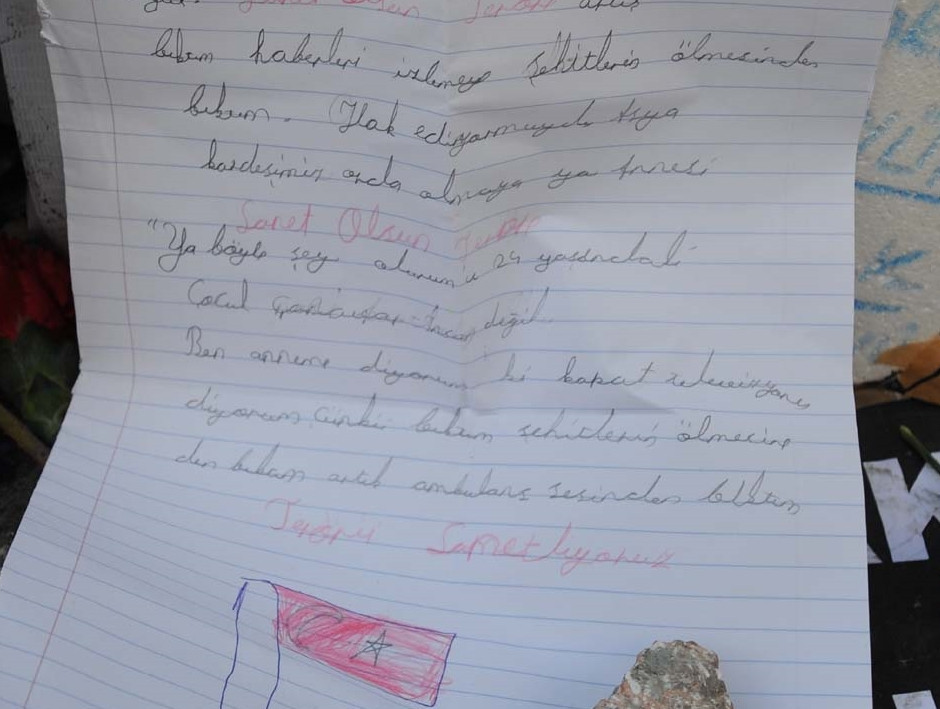 Lanet Olsun Terör artık
bıktım haberleri izlemeye şehitlerin ölmesinden
bıktım. Hak ediyormuydu Asya
kardeşimiz orda olmaya ya Annesi
Lanet Olsun Terör
"Ya böyle şey olurmu 24 yaşındaki
Çocuk değil
Ben anneme diyorum ki kapat televizyonu
diyorum Çünkü bıktım şehitlerin ölmesine
den bıktım artık ambulans sesinden bıktım
Terörü Lanetliyoruz